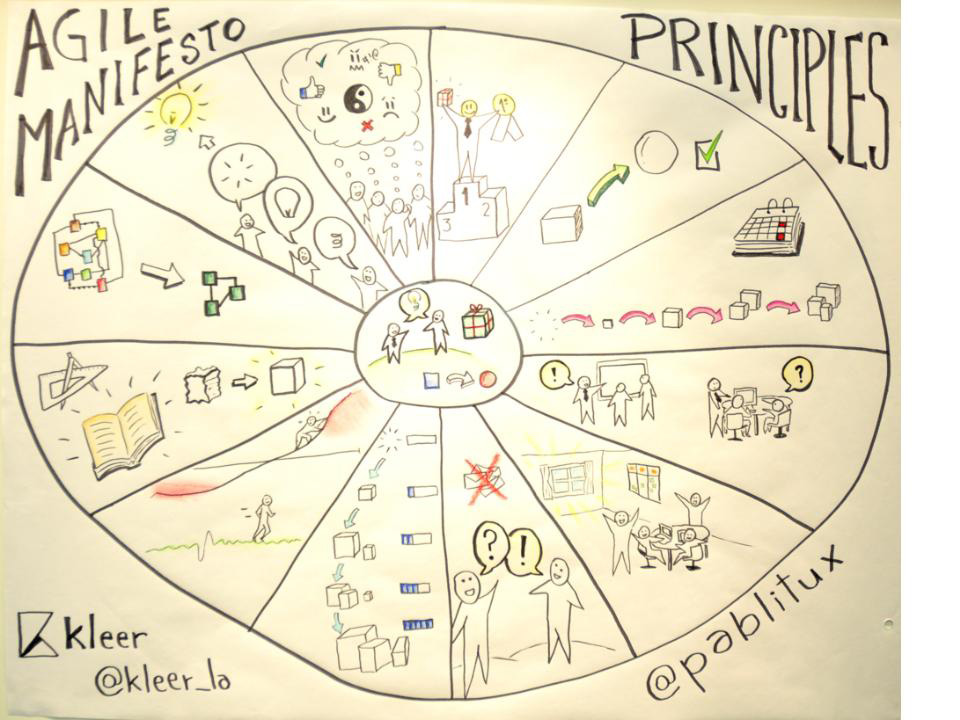 AGILE
MANIFESTO
PRINCIPLES
1
2
3
?
!
!
?
kleer
@kleer_la
@pablitux